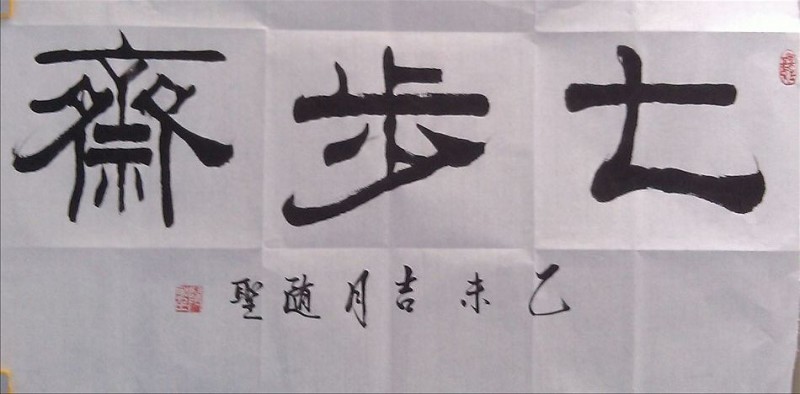 七步齋
乙未吉月随聖